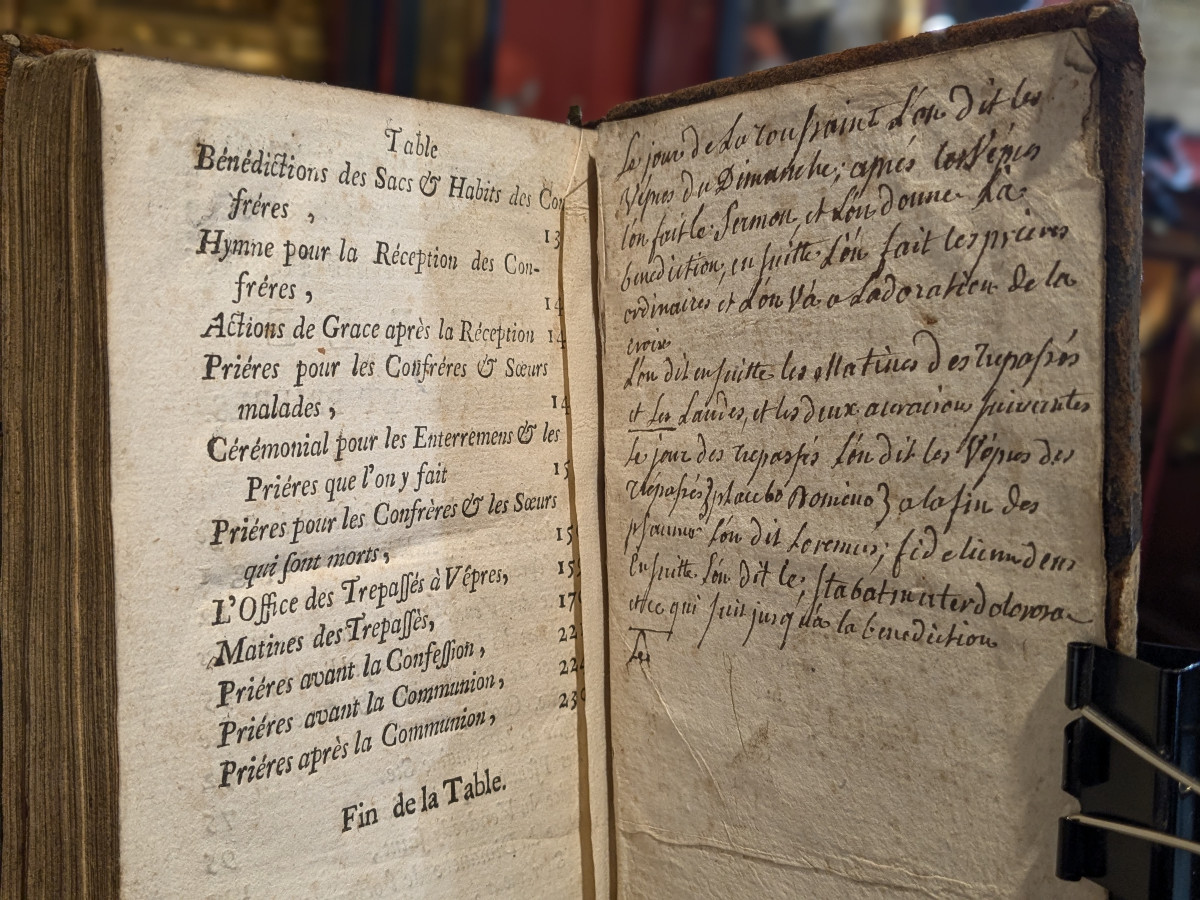 Table
Bénédictions des Sacs & Habits des Con
fréres , 13
Hymne pour la Réception des Con-
fréres , 14
Actions de Grace après la Réception 14
Priéres pour les Confréres & Sœurs
malades , 14
Cérémonial pour les Enterremens & les
Priéres que l'on y fait 15
Priéres pour les Confrères & les Sœurs
qui sont morts , 15
L'Office des Trepassés à Vêpres, 15
Matines des Trepassès, 17
Priéres avant la Confession , 22
Priéres avant la Communion, 22
Priéres après la Communion, 23
Fin de la Table.
Le jour de La toussaint L'on dit les
Vépres du Dimanche; aprés les Vépres
l'on fait le Sermon, et L'on donne La
benediction, en suitte L'on fait les prieres
ordinaires et L'on Vá a Ladoration de la
croix
L'on dit en suitte les Matines des trepassés
et Les Laudes, et les deux oraisons suivantes
Le jour des trepassés L'on dit les Vépres des
trepassés placebo Domino a la fin des
psaumes L'on dit Loremus; fidelium deus
Ensuitte L'on dit le, stabat mater dolorosa
et ce qui suit jusqu'a la benediction